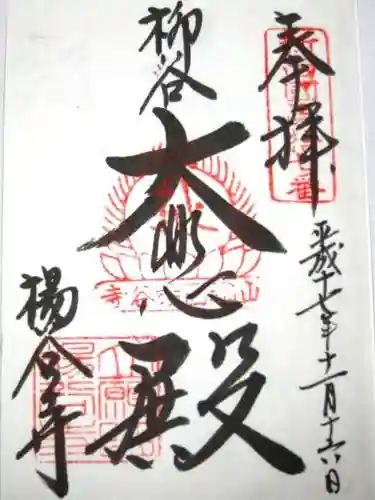 奉拝
平成十七年十一月十六日
柳谷
大悲殿
楊谷寺